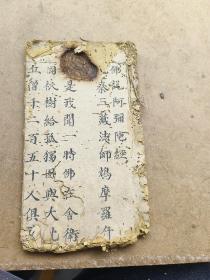 佛說阿彌陀經
秦三藏法師鳩摩羅什
是我聞一時佛在舍衛
國祇樹給孤獨園與大比
丘僧千二百五十人俱